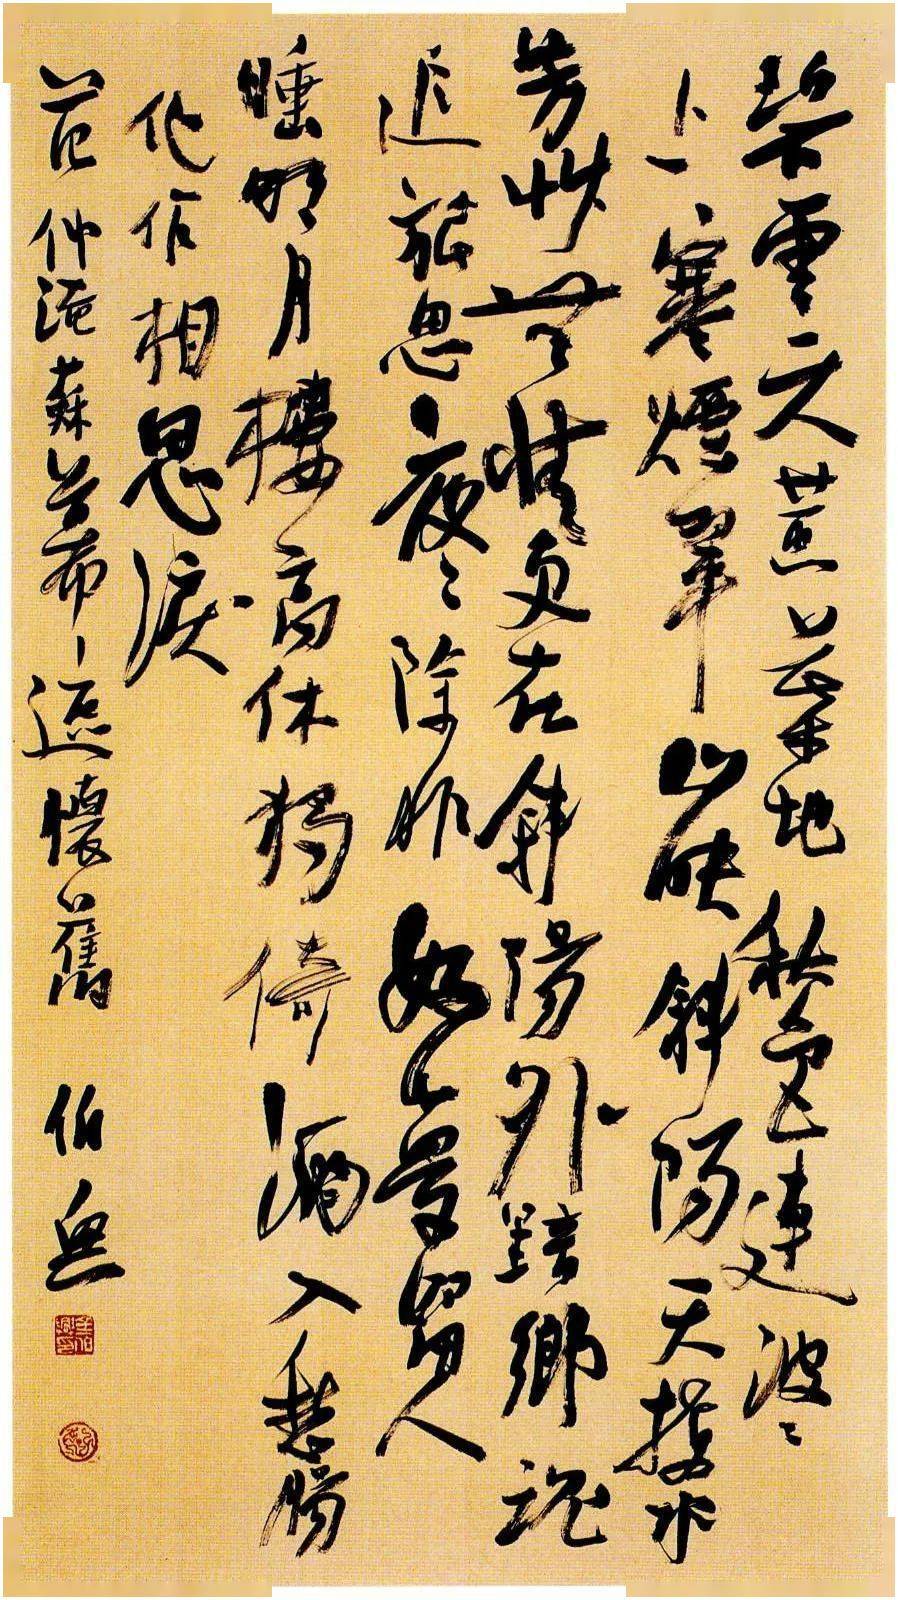 碧雲天黃葉地秋色連波〻
上寒煙翠山映斜陽天接水
芳艸無情更在斜陽外黯鄉魂
追旅思夜〻除非好夢留人
睡明月樓高休獨倚酒入愁腸
化作相思淚
范仲淹蘇幕遮懷舊 伯